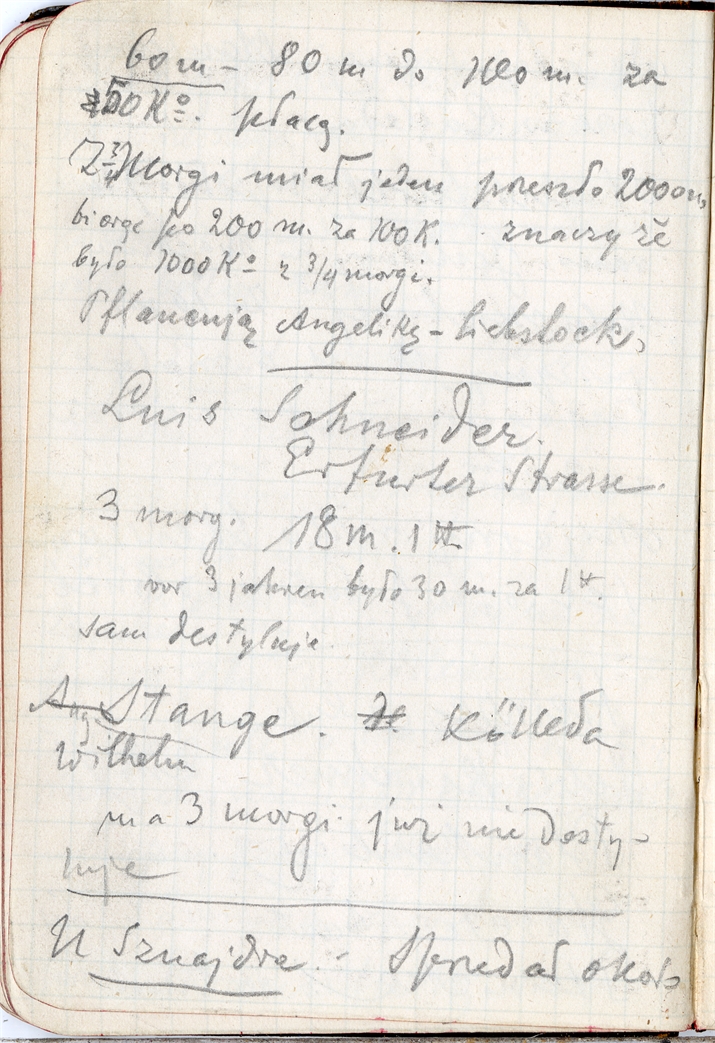 60 m – 80 m do 100 m. za
50 Kº. płacą.
Z ¾ Morgi miał jeden przeszło 2000 m,
biorąc po 200 m. za 100 K. znaczy że
było 1000 Kº z ¾ morgi.
Pflancują Angelikę – Liebstock,
Luis Schneider.
Erfurter Strasse.
3 morg. 18 m. 1 ℔
vor 3 jahren było 30 m. za 1 ℔.
sam destyluje.
Stange. Kölleda
Wilhelm
ma 3 morgi już nie desty-
luje
U Sznajdra. – Sprzedał około